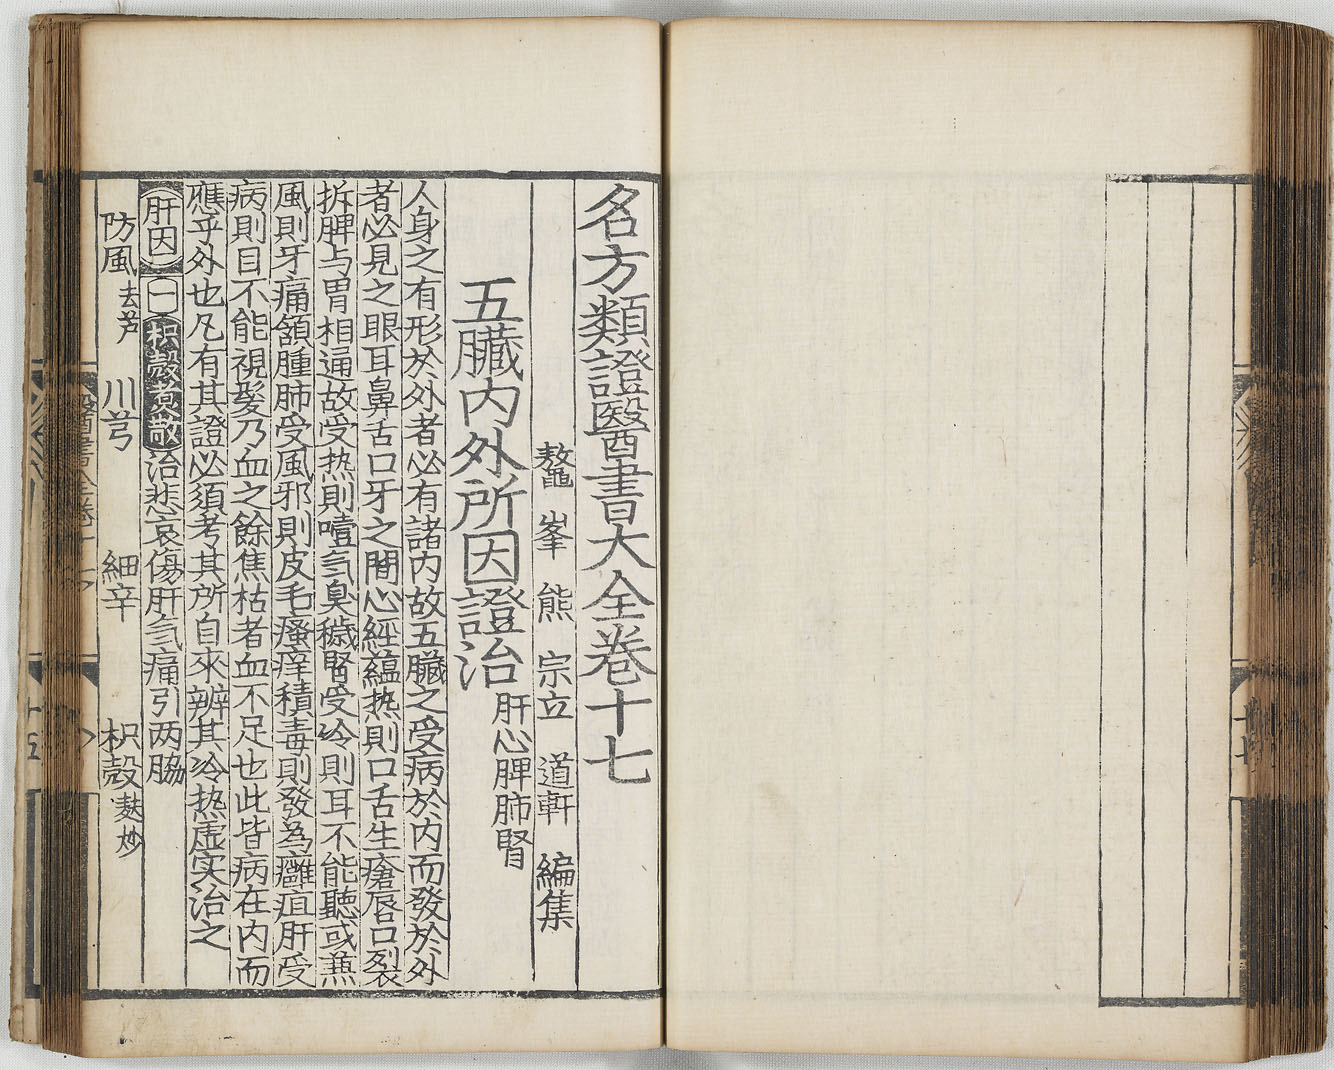 名方類證醫書大全卷十七
鼇峯熊宗立道軒編集
五臟内外所因證治肝心脾肺腎
人身之有形於外者必有諸内故五臟之受病於内而發於外
者必見之眼耳鼻舌口牙之間心經蘊热則口舌生瘡唇口裂
拆脾与胃相通故受热則噎氣臭穢腎受冷則耳不能聽或蕉
風則牙痛頷腫肺受風邪則皮毛瘙痒積毒則發為癰疽肝受
病則目不能視髮乃血之餘焦枯者血不足也此皆病在内而
應乎外也凡有其證必須考其所自來辨其冷热虛实治之
肝因一枳殼煮散治悲哀傷肝氣痛引两脇
防風去芦川芎細辛枳殼麸炒